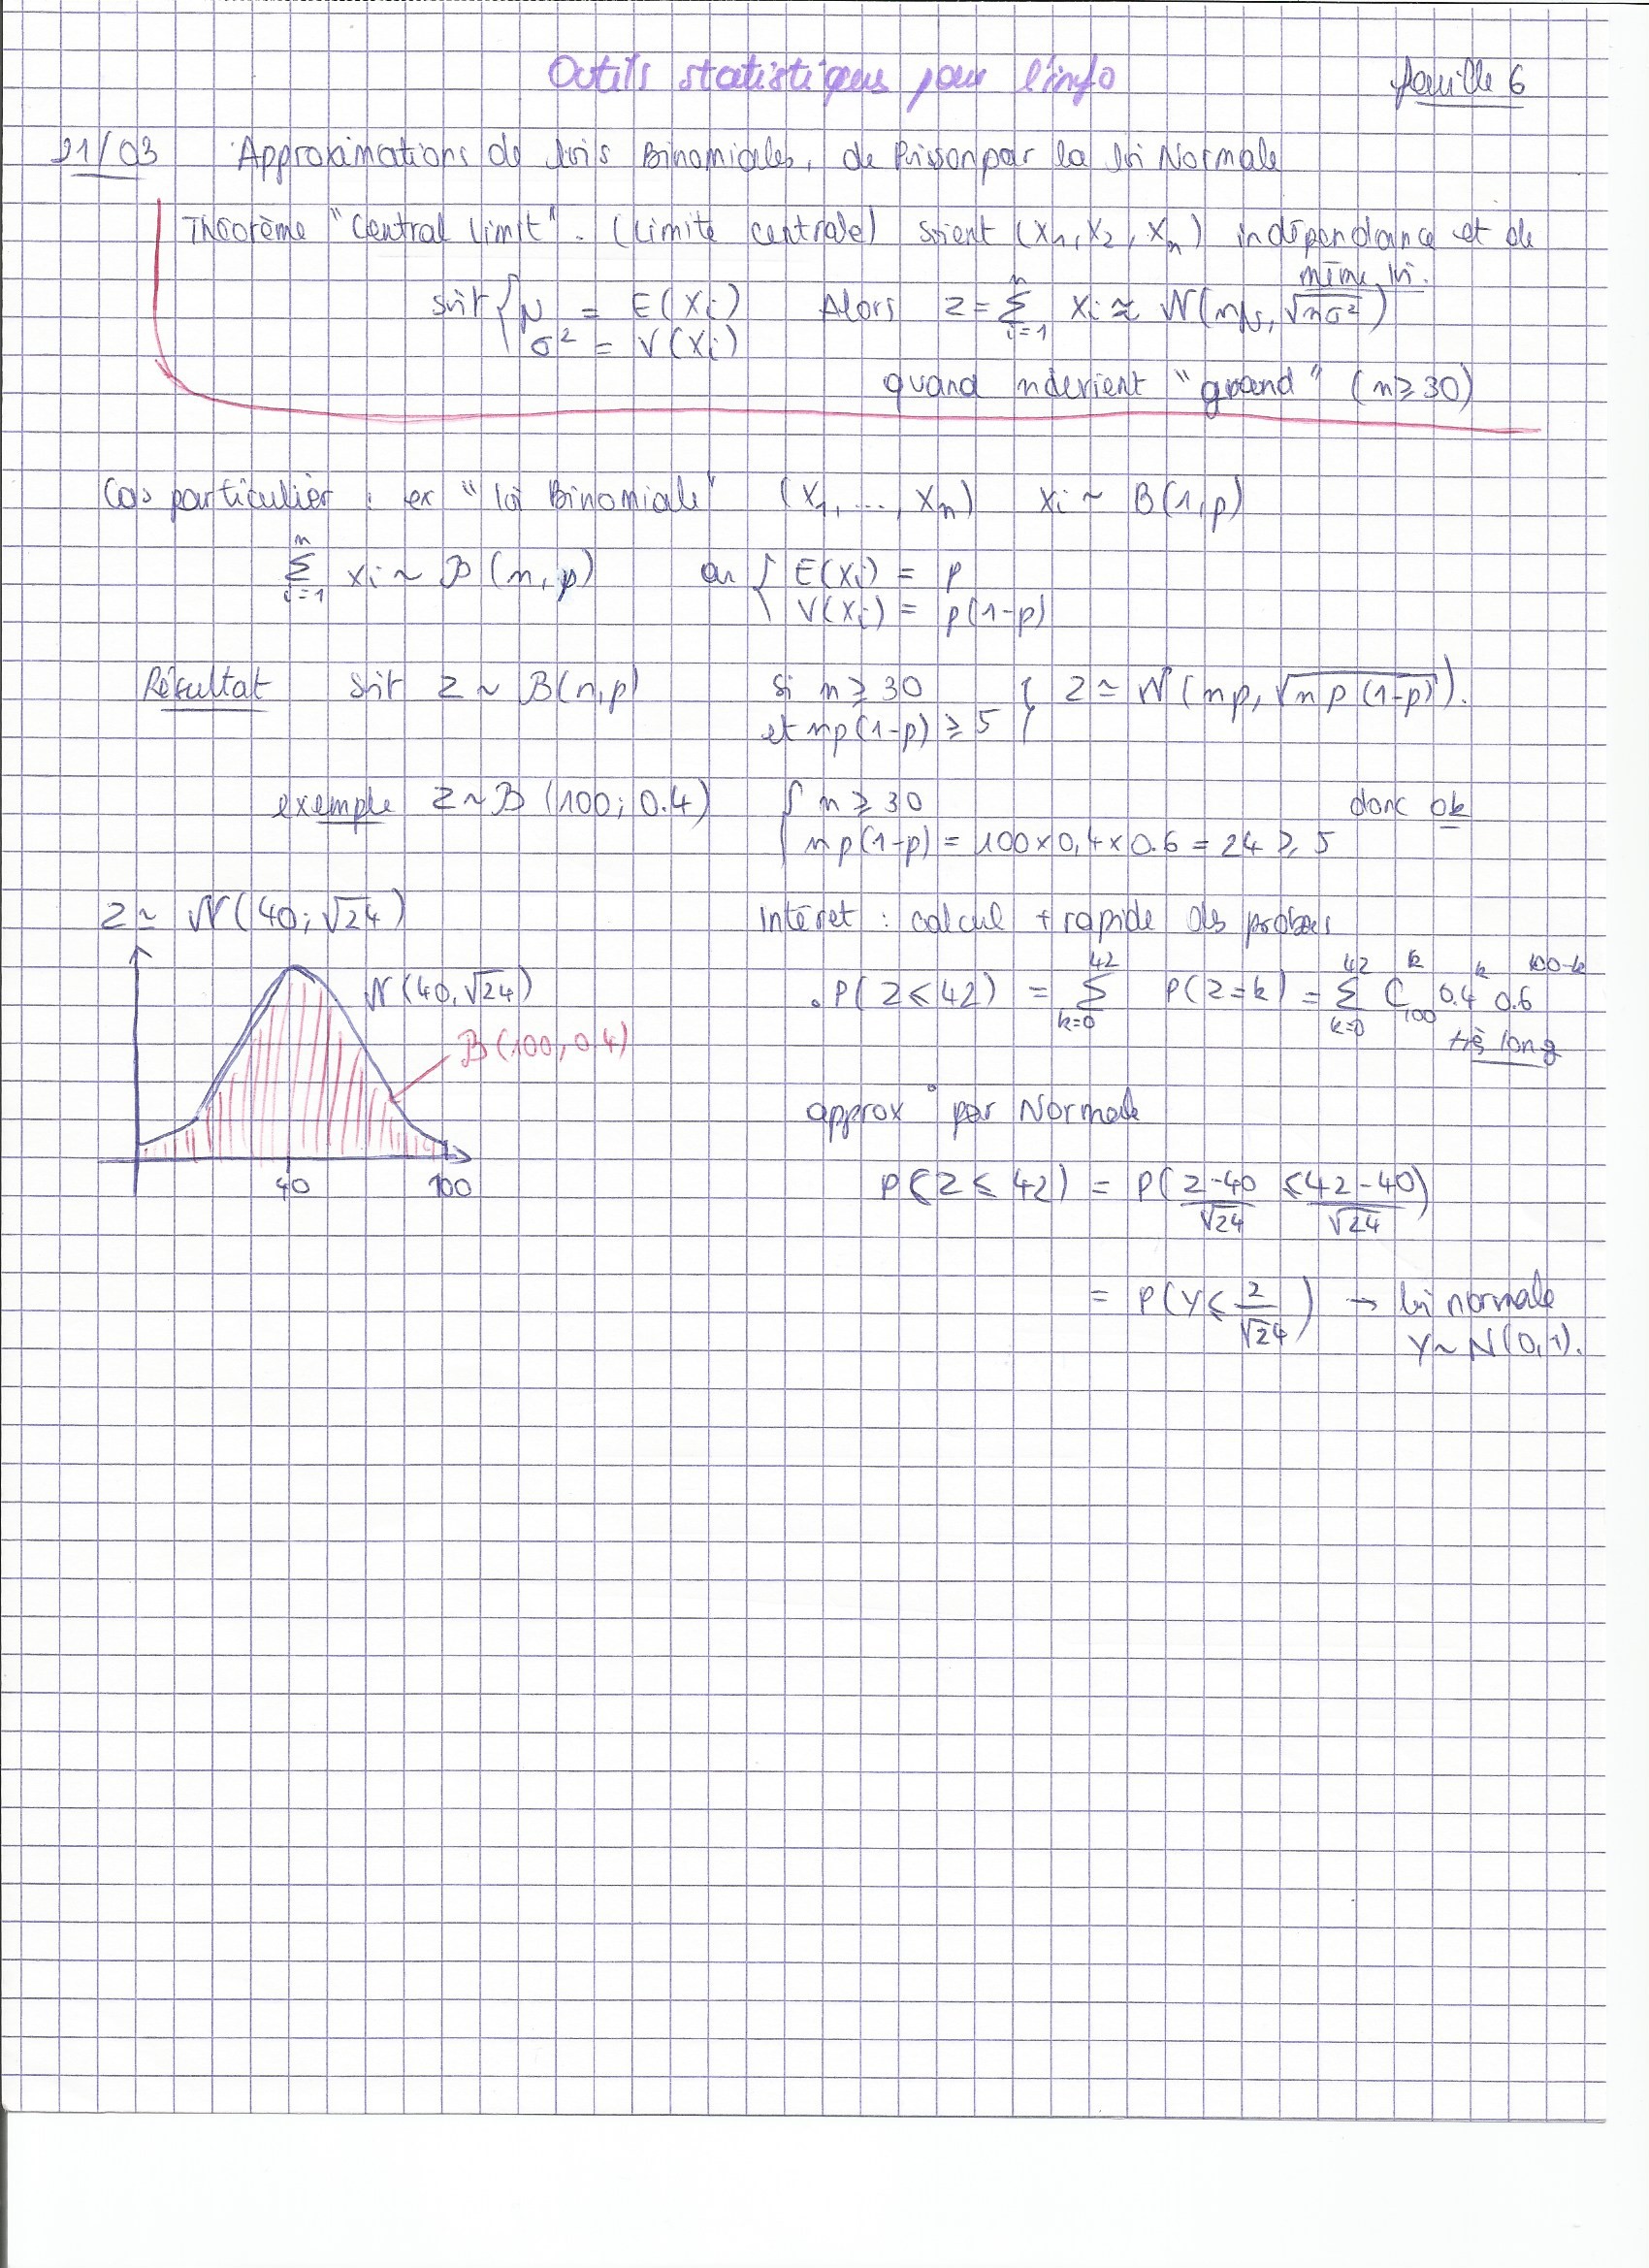 Outils statistiques pour l'info
feuille 6
21/03 Approximations de lois Binomiales, de Poisson par la loi Normale
Théorème "Central Limit". (Limite centrale) soient (X1, X2, Xn) indépendance et de
même loi.
soit { μ = E(Xi)
σ² = V(Xi)
Alors Z = Σ_{i=1}^{n} Xi ≈ N(nμ, √nσ²)
quand n devient "grand" (n ≥ 30)
Cas particulier : ex "loi Binomiale" (X1, ..., Xn) Xi ~ B(1,p)
Σ_{i=1}^{n} Xi ~ B(n,p) or { E(Xi) = p
V(Xi) = p(1-p)
Résultat soit Z ~ B(n,p) si n ≥ 30 } Z ≃ N(np, √np(1-p)).
et np(1-p) ≥ 5
exemple Z ~ B(100; 0.4) { n ≥ 30 donc ok
np(1-p) = 100×0,4×0.6 = 24 ≥ 5
Z ≃ N(40; √24)
N(40, √24)
B(100, 0.4)
40 100
Intéret : calcul + rapide des probas
. P(Z ≤ 42) = Σ_{k=0}^{42} P(Z=k) = Σ_{k=0}^{42} C_{100}^{k} 0.4^k 0.6^{100-k}
très long
approx° par Normale
P(Z ≤ 42) = P((Z-40)/√24 ≤ (42-40)/√24)
= P(Y ≤ 2/√24) → loi normale
Y ~ N(0,1).